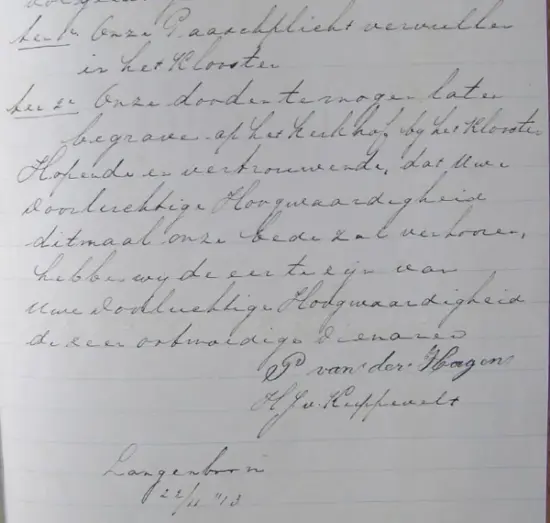 ten 1e Onze Paaschplicht vervullen
in het Klooster
ten 2e Onze dooden te mogen laten
begrave op het kerkhof bij het Klooster
Hopende en vertrouwende, dat Uwe
Doorluchtige Hoogwaardigheid
ditmaal onze bede zal verhooren,
hebben wij de eer te zijn van
Uwe Doorluchtige Hoogwaardigheid
de zeer ootmoedige Dienaren
P van der Hagen
H J v. Kuppevelt
Langenboom
22/11 "13